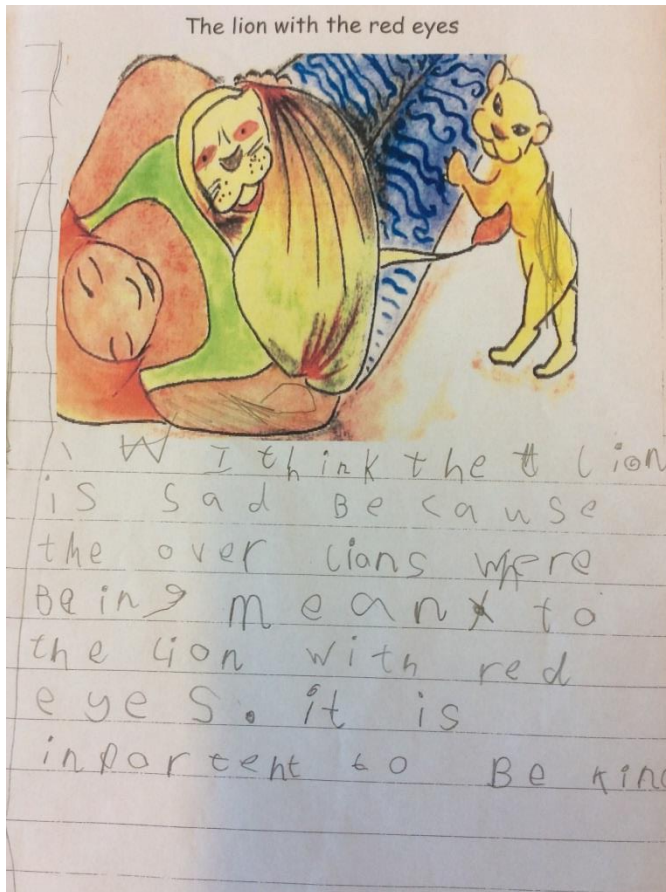 The lion with the red eyes
I think the lion
is sad Because
the over lians were
Being mean to
the lion with red
eyes. it is
inportent to Be kind